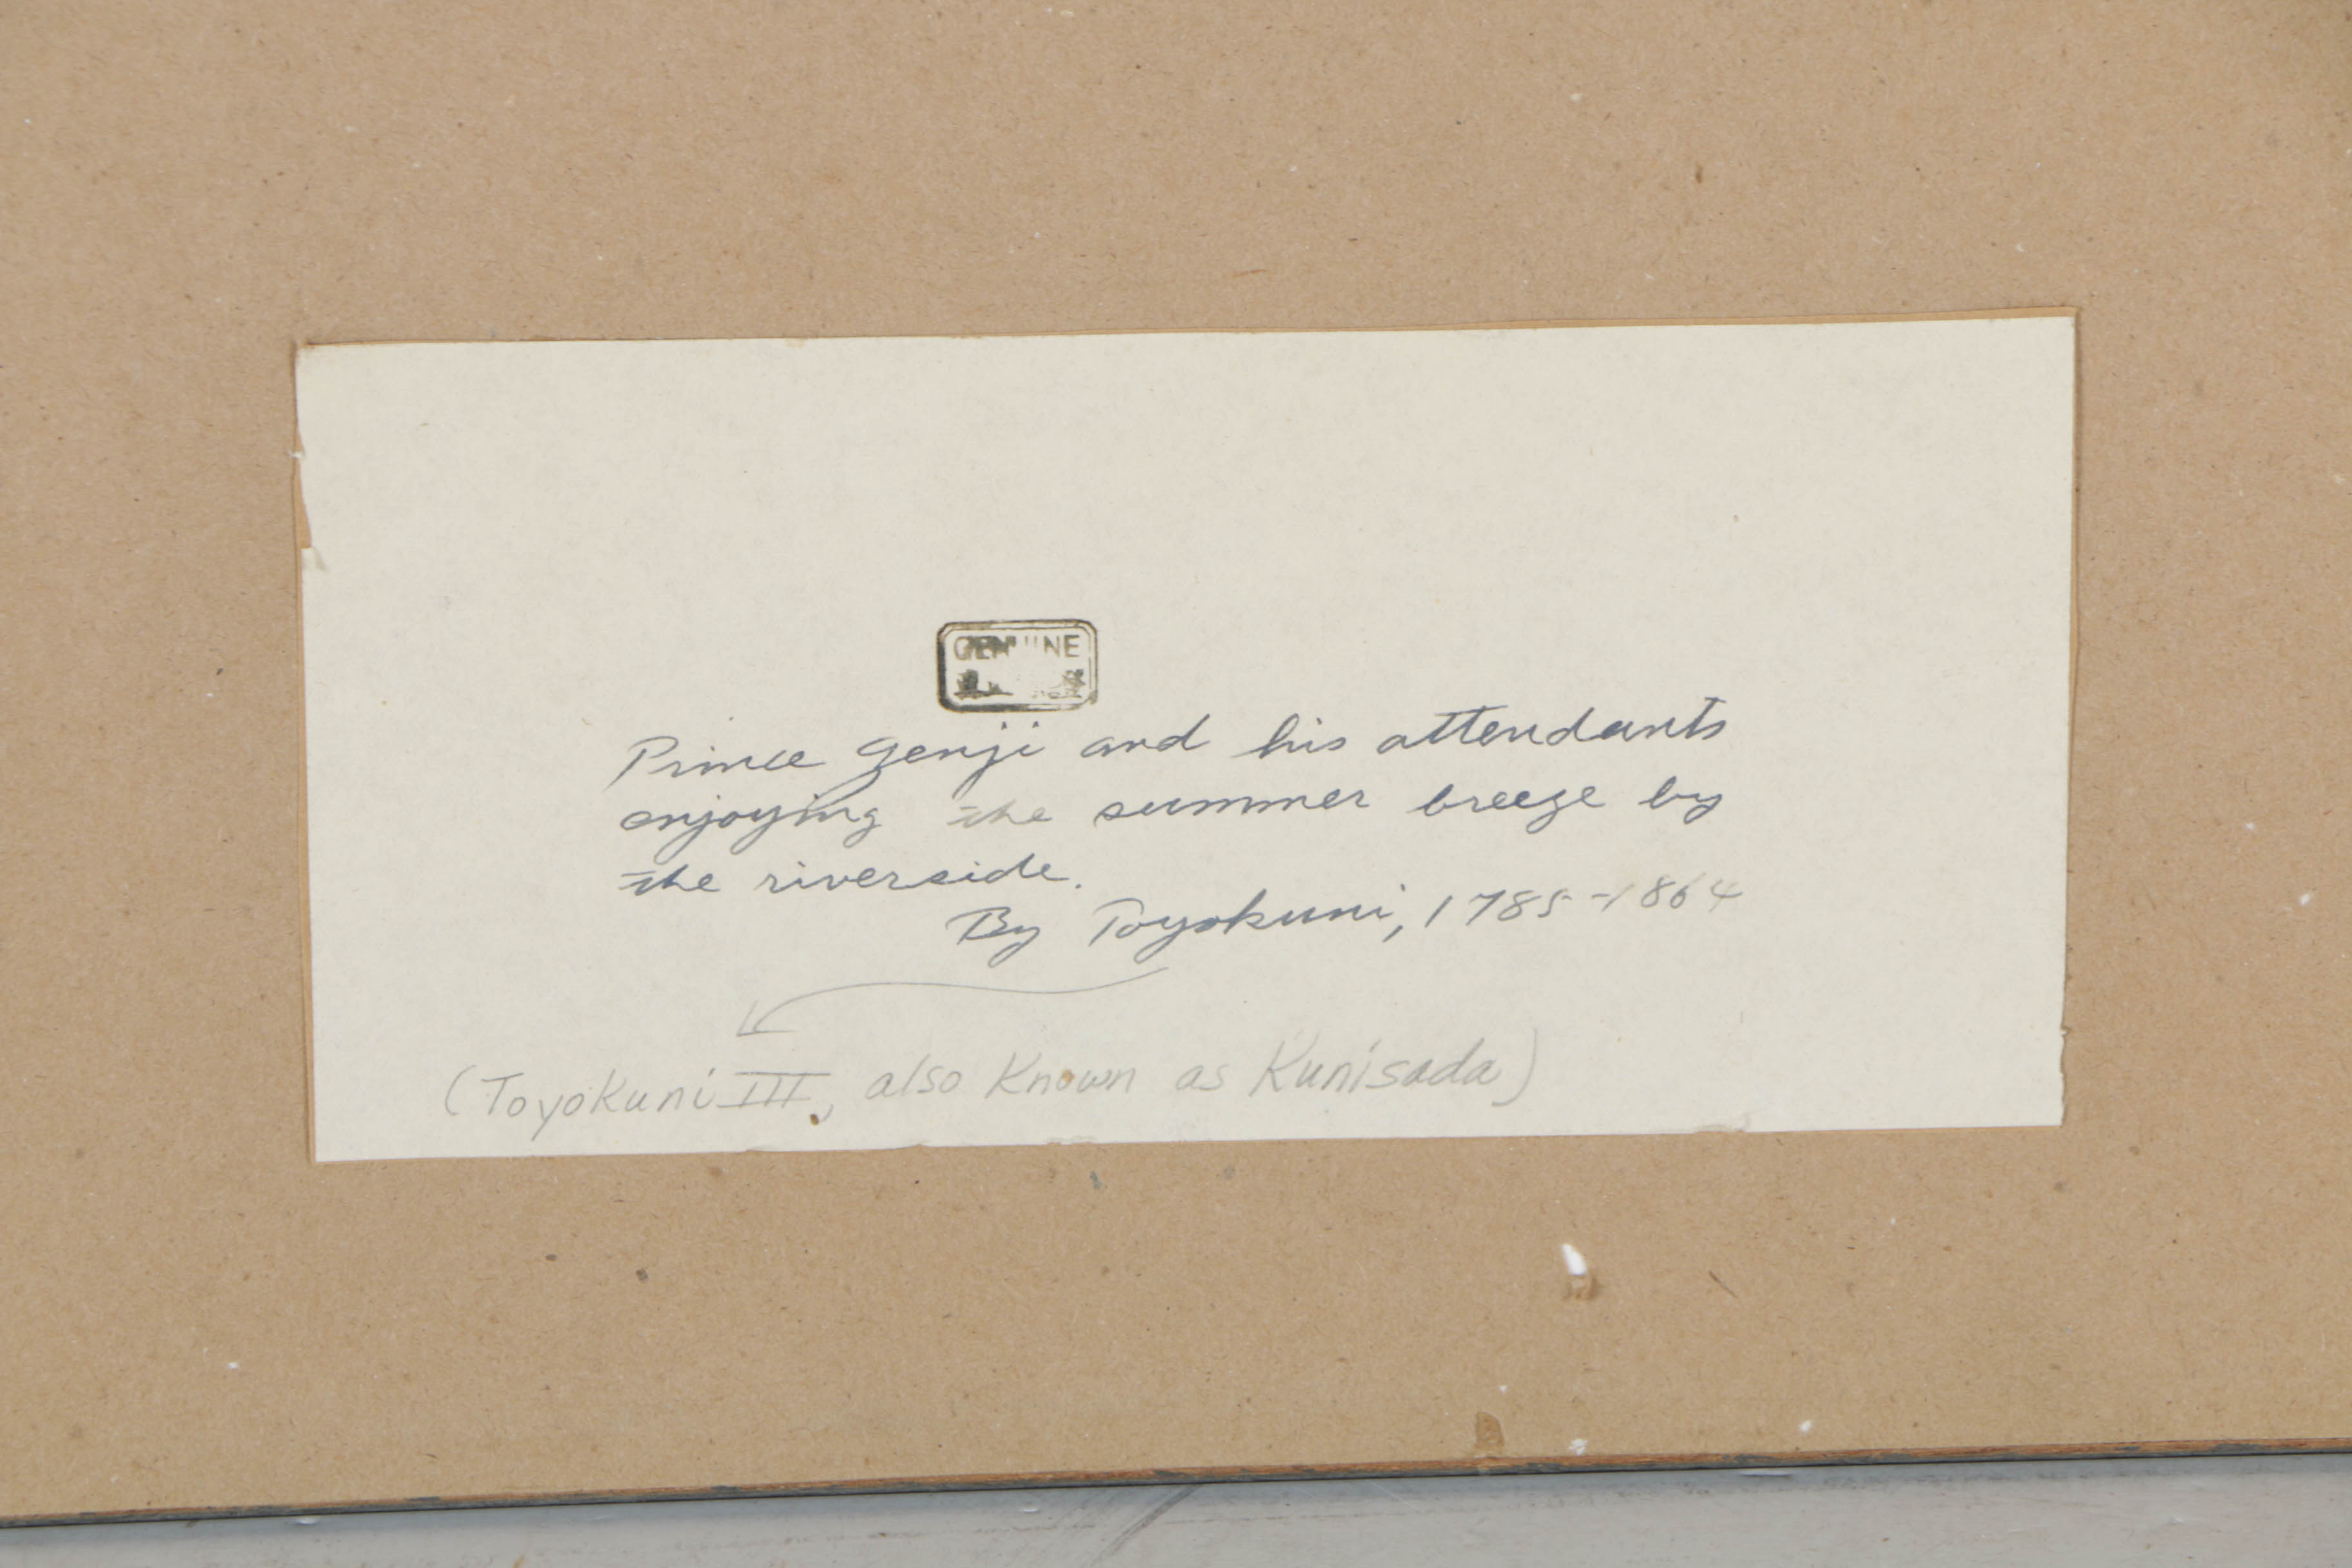 GENUINE
Prince Genji and his attendants
enjoying the summer breeze by
the riverside.
By Toyokuni, 1785-1864
(Toyokuni III, also known as Kunisada)